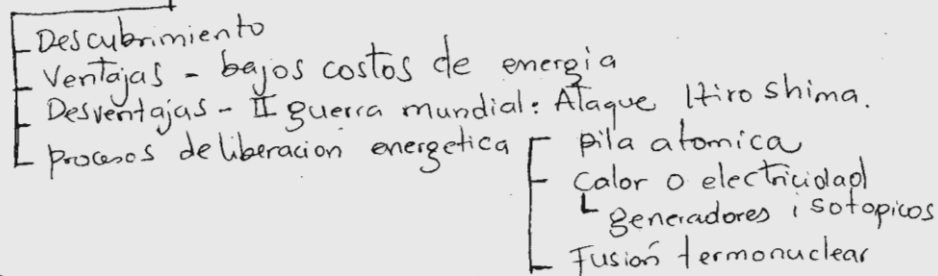 Descubrimiento
Ventajas - bajos costos de energia
Desventajas - II guerra mundial: Ataque Hiroshima.
procesos de liberacion energetica
pila atomica
Calor o electricidad
generadores isotopicos
Fusión termonuclear